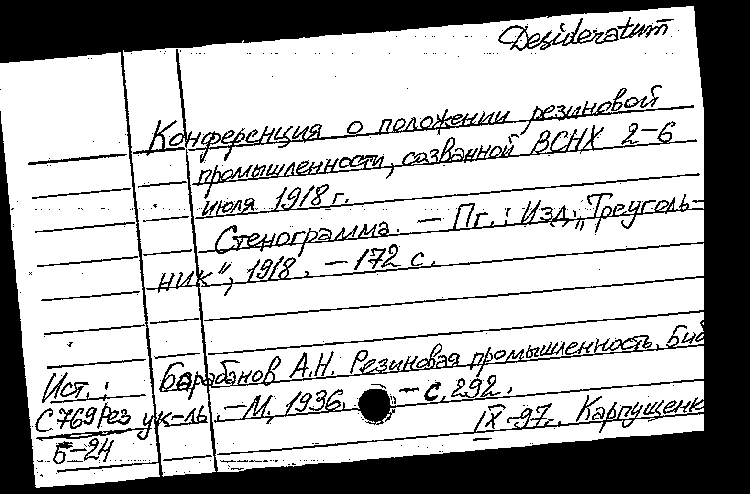 Desideratum
Конференция о положении резиновой
промышленности, созванной ВСНХ 2-6
июля 1918 г.
Стенограмма. - Пг.: Изд. „Треуголь-
ник", 1918. - 172 с.
Ист.: Барабанов А.Н. Резиновая промышленность. Биб
С769рез ук-ль. - М, 1936. - с. 292.
Б-24 IX-97. Карпущенк